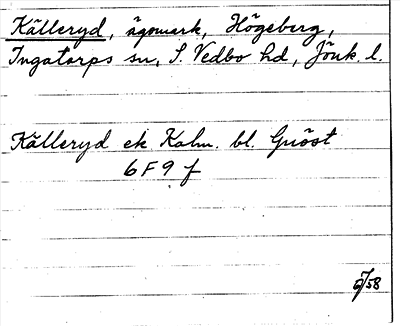 Källeryd, ägomark, Högeberg,
Ingatorps sn, S. Vedbo hd, Jönk. l.
Källeryd ek Kalm. bl.
6 F 9 f